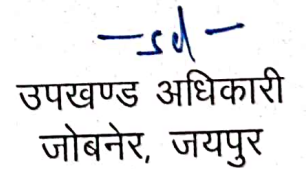 -sd-
उपखण्ड अधिकारी
जोबनेर, जयपुर